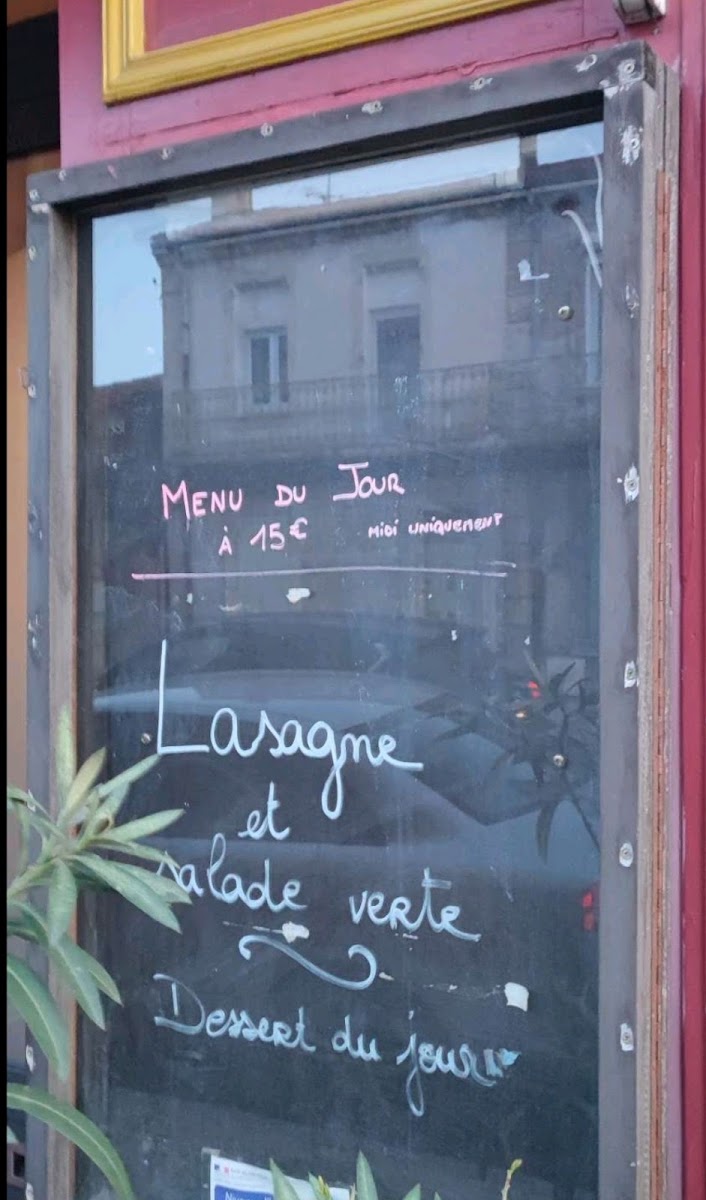 MENU DU JOUR
À 15€ MIDI UNIQUEMENT
Lasagne
et
salade verte
Dessert du jour